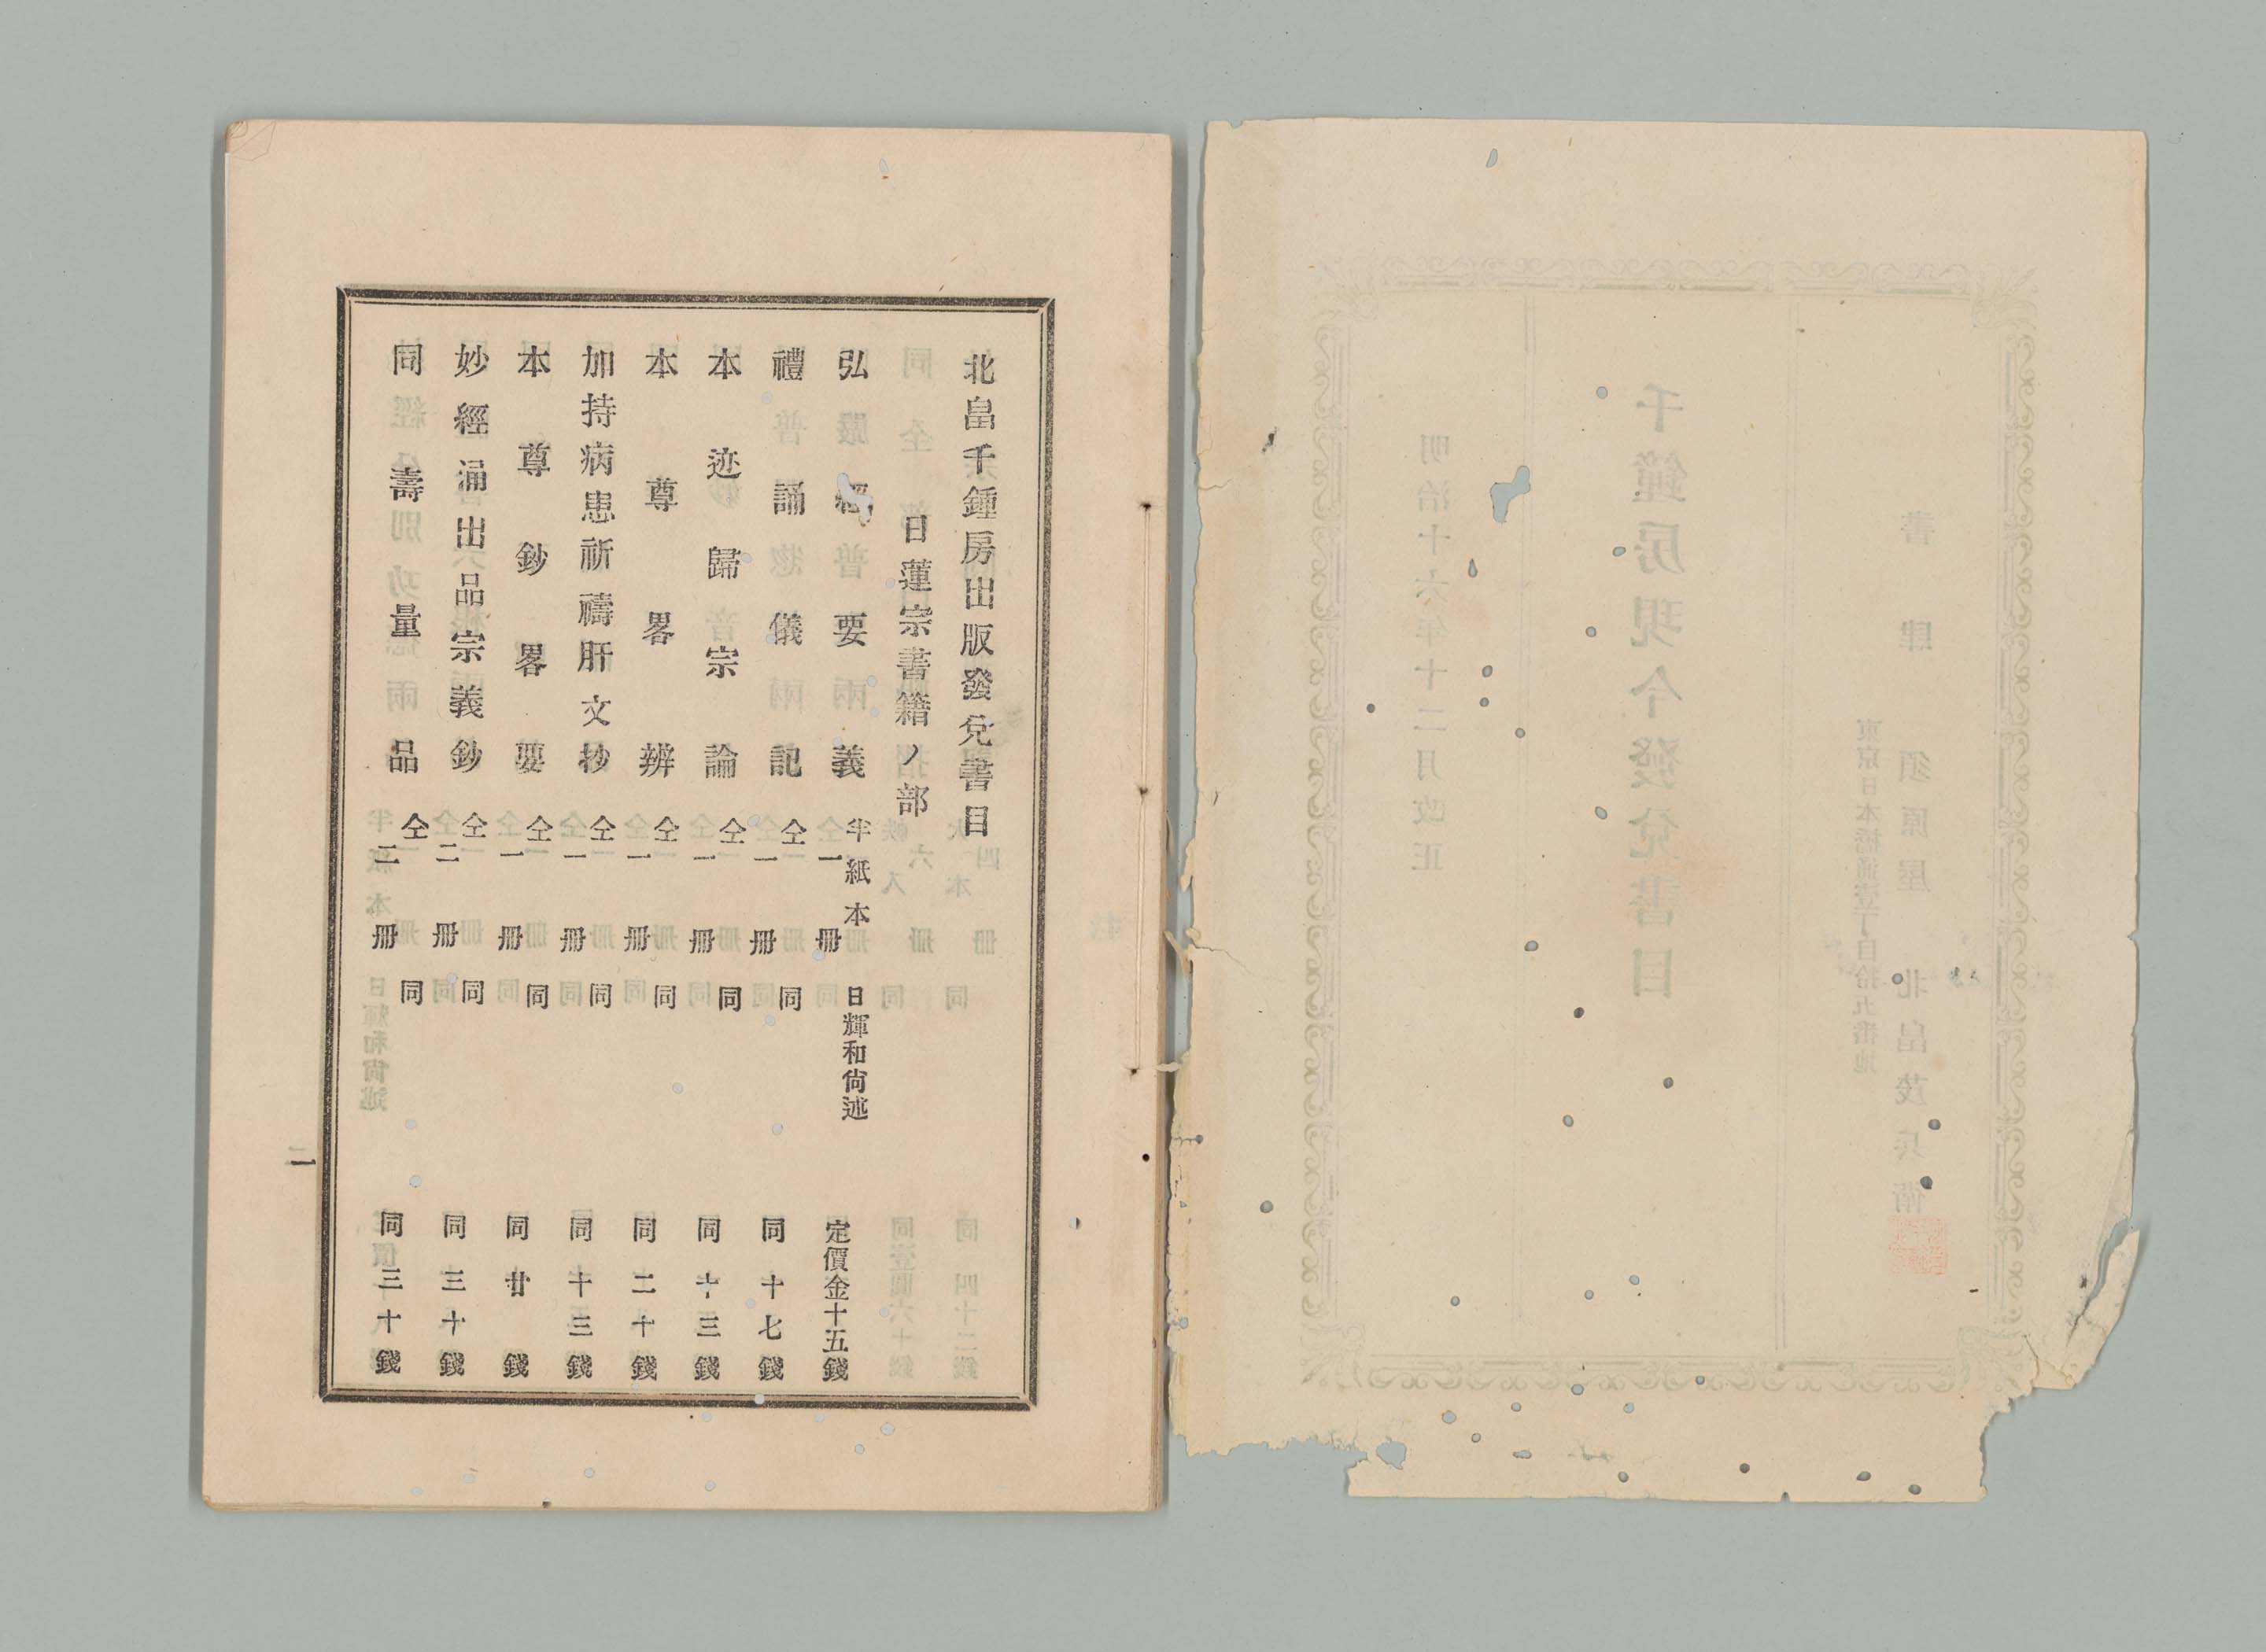 書肆 須原屋 北畠茂兵衛
東京日本橋通壹丁目拾五番地
千鐘房現今發兌書目
明治十六年十二月改正
北畠千鍾房出版發兌書目
日蓮宗書籍ノ部
弘經要義 半紙本 一冊 日輝和尚述 定價金十五錢
禮誦儀記 仝 一冊 同 同十七錢
本迹歸宗論 仝 一冊 同 同十三錢
本尊畧辨 仝 一冊 同 同二十錢
加持病患祈禱肝文抄 仝 一冊 同 同十三錢
本尊鈔畧要 仝 一冊 同 同廿錢
妙經涌出品宗義鈔 仝 二冊 同 同三十錢
同壽量品 仝 二冊 同 同三十錢
一